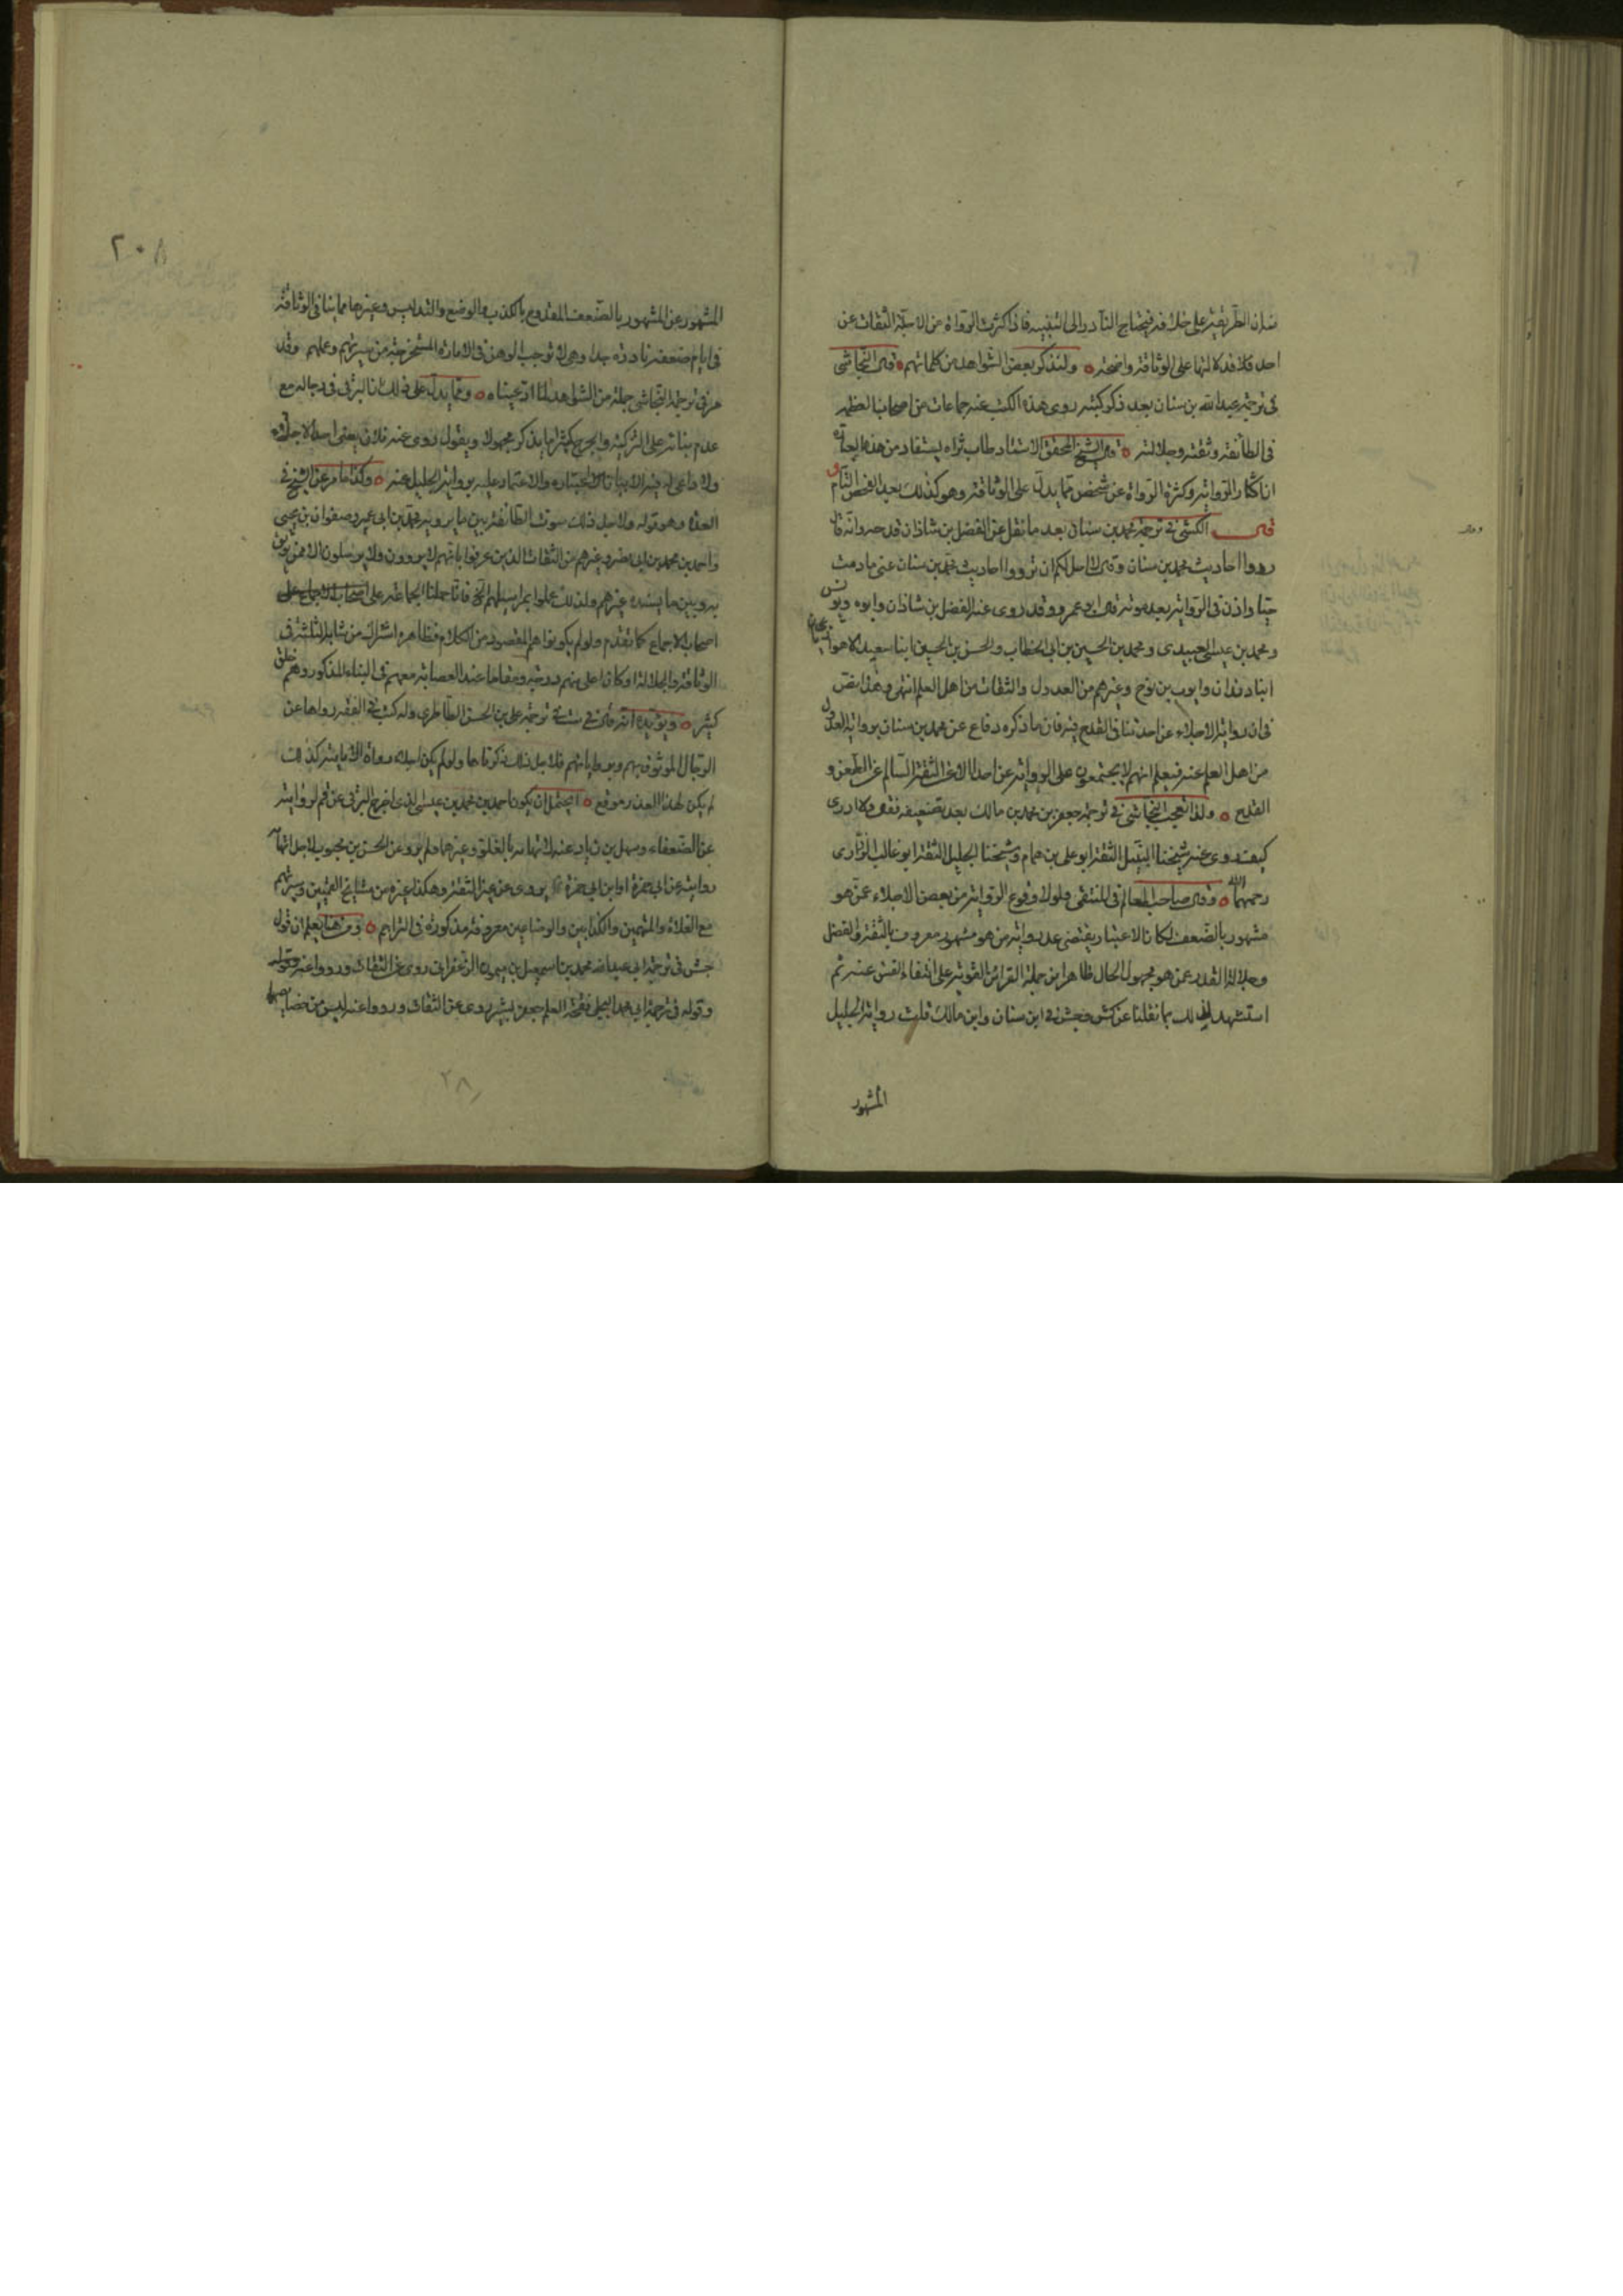 فان الطريقة على خلافه فيحتاج النادر الى التنبيه فاذا اكثرت الرواة من الاجلة الثقات عن
احد فلا فدلالتها على الوثاقة واضحة ولنذكر بعض الشواهد من كلماتهم قال النجاشى
فى ترجمة عبد الله بن سنان بعد ذكر كتبه روى هذه الكتب عنه جماعات من اصحابنا لعظمه
فى الطائفة وثقته وجلالته قال الشيخ المحقق الاستاد طاب ثراه يستفاد من هذه العبارة
ان اكثار الرواية وكثرة الرواة عن شخص مما يدل على الوثاقة وهو كذلك بعد الفحص التام و
قال الكشى فى ترجمة محمد بن سنان بعد ما نقل عن الفضل بن شاذان قدحه وانه قال
ردوا احاديث محمد بن سنان وقال لا احل لكم ان ترووا احاديث محمد بن سنان عنى ما دمت
حيا واذن فى الرواية بعد موته قال ابو عمرو وقد روى عنه الفضل بن شاذان وابوه ويونس
ومحمد بن عيسى العبيدى ومحمد بن الحسين بن ابى الخطاب والحسن بن الحسين ابنا سعيد الاهوازيان
ابنا دندان وايوب بن نوح وغيرهم من العدول والثقات من اهل العلم انتهى وهذا نص
فى ان رواية الاجلاء عن احد تنافى القدح فيه فان ما ذكره دفاع عن محمد بن سنان برواية العدول
من اهل العلم عنه فيعلم انهم لا يجتمعون على الرواية عن احد الا عن الثقة السالم عن الطعن و
القدح ولذا تعجب النجاشى فى ترجمة جعفر بن محمد بن مالك بعد تضعيفه فقال ولا ادرى
كيف روى عنه شيخنا النبيل الثقة ابو على بن همام وشيخنا الجليل الثقة ابو غالب الزرارى
رحمهما الله وقال صاحب المعالم فى المنتقى ولولا وقوع الرواية من بعض الاجلاء عمن هو
مشهور بالضعف لكان الاعتبار يقتضى عد رواية من هو مشهور معروف بالثقة والفضل
وجلالة القدر عمن هو مجهول الحال ظاهرا من جملة القرائن القوية على انتفاء الفسق عنه ثم
استشهد لذلك بما نقلنا عن كش وجش فى ابن سنان وابن مالك قلت رواية الجليل
المشهور
٢٠٨
المشهور عن المشهور بالضعف المقدوح بالكذب والوضع والتدليس وغيرها مما ينافى الوثاقة
فى ايام ضعفه نادرة جدا وهى لا توجب الوهن فى الامارة المستخرجة من سيرتهم وعملهم وقد
مر فى ترجمة النجاشى جملة من الشواهد لما ادعيناه ومما يدل على ذلك ان البرقى فى رجاله مع
عدم بنائه على التزكية والجرح كثيرا ما يذكر مجهولا ويقول روى عنه فلان يعنى احد الاجلاء
ولا داعى له فيه الا بيان الاعتبار والاعتماد عليه برواية الجليل عنه وكذا ما مر عن الشيخ فى
العدة وهو قوله ولاجل ذلك سوت الطائفة بين ما يرويه محمد بن ابى عمير وصفوان بن يحيى
واحمد بن محمد بن ابى نصر وغيرهم من الثقات الذين عرفوا بانهم لا يروون ولا يرسلون الا عمن يوثق
به وبين ما يسنده غيرهم ولذلك عملوا بمراسيلهم الخ فانا حملنا الجماعة على اصحاب الاجماع على
اصحاب الاجماع كما تقدم ولو لم يكونوا هم المقصود من الكلام فظاهره اشتراك من شابه الثلثة فى
الوثاقة والجلالة او كان اعلى منهم درجة ومقاما عند العصابة معهم فى البناء المذكور وهم خلق
كثير ويؤيده انه قال فى ست فى ترجمة على بن الحسن الطاطرى وله كتب فى الفقه رواها عن
الرجال الموثوق بهم وبرواياتهم فلاجل ذلك ذكرناها ولو لم يكن اجلاء رواة الامامية كذلك
لم يكن لهذا العذر موقع ايحتمل ان يكون احمد بن محمد بن عيسى الذى اخرج البرقى عن قم لروايته
عن الضعفاء وسهل بن زياد عنه لاتهامه بالغلو وغيرهما ولم يرو عن الحسن بن محبوب لاجل اتهام
روايته عن ابى حمزة او ابن ابى حمزة يروى عن غير الثقة وهكذا غيره من مشايخ القميين وسيرتهم
مع الغلاة والمتهمين والكذابين والوضاعين معروفة مذكورة فى التراجم ومن هنا يعلم ان قول
جش فى ترجمة ابى عبد الله محمد بن اسمعيل بن ميمون الزعفرانى روى عن الثقات ورووا عنه وقوله
وقوله فى ترجمة ابى محمد البجلى فقحة العلم جعفر بن بشير روى عن الثقات ورووا عنه ليس من خصايصهما
٢٨